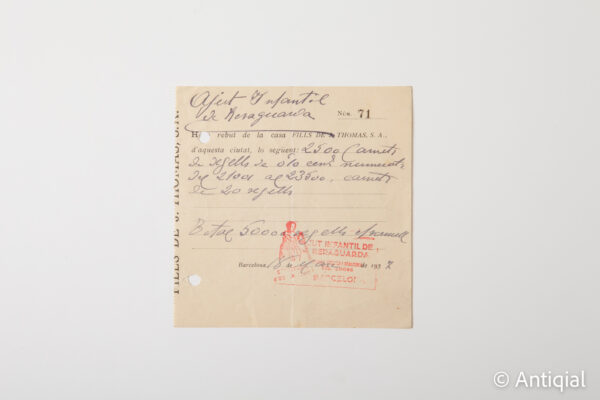 Ajut Infantil
de Reraguarda
Núm. 71
H rebut de la casa FILLS DE J. THOMAS, S. A.,
d'aquesta ciutat, lo següent: 2500 Carnets
de segells de 0'10 cèns numerats
del 21001 al 23500, carnets
de 20 segells
Total 50000 segells
AJUT INFANTIL DE
RERAGUARDA
BARCELONA
Barcelona, 8 de de 1937
FILLS DE J. THOMAS, S. A.
© Antiqial